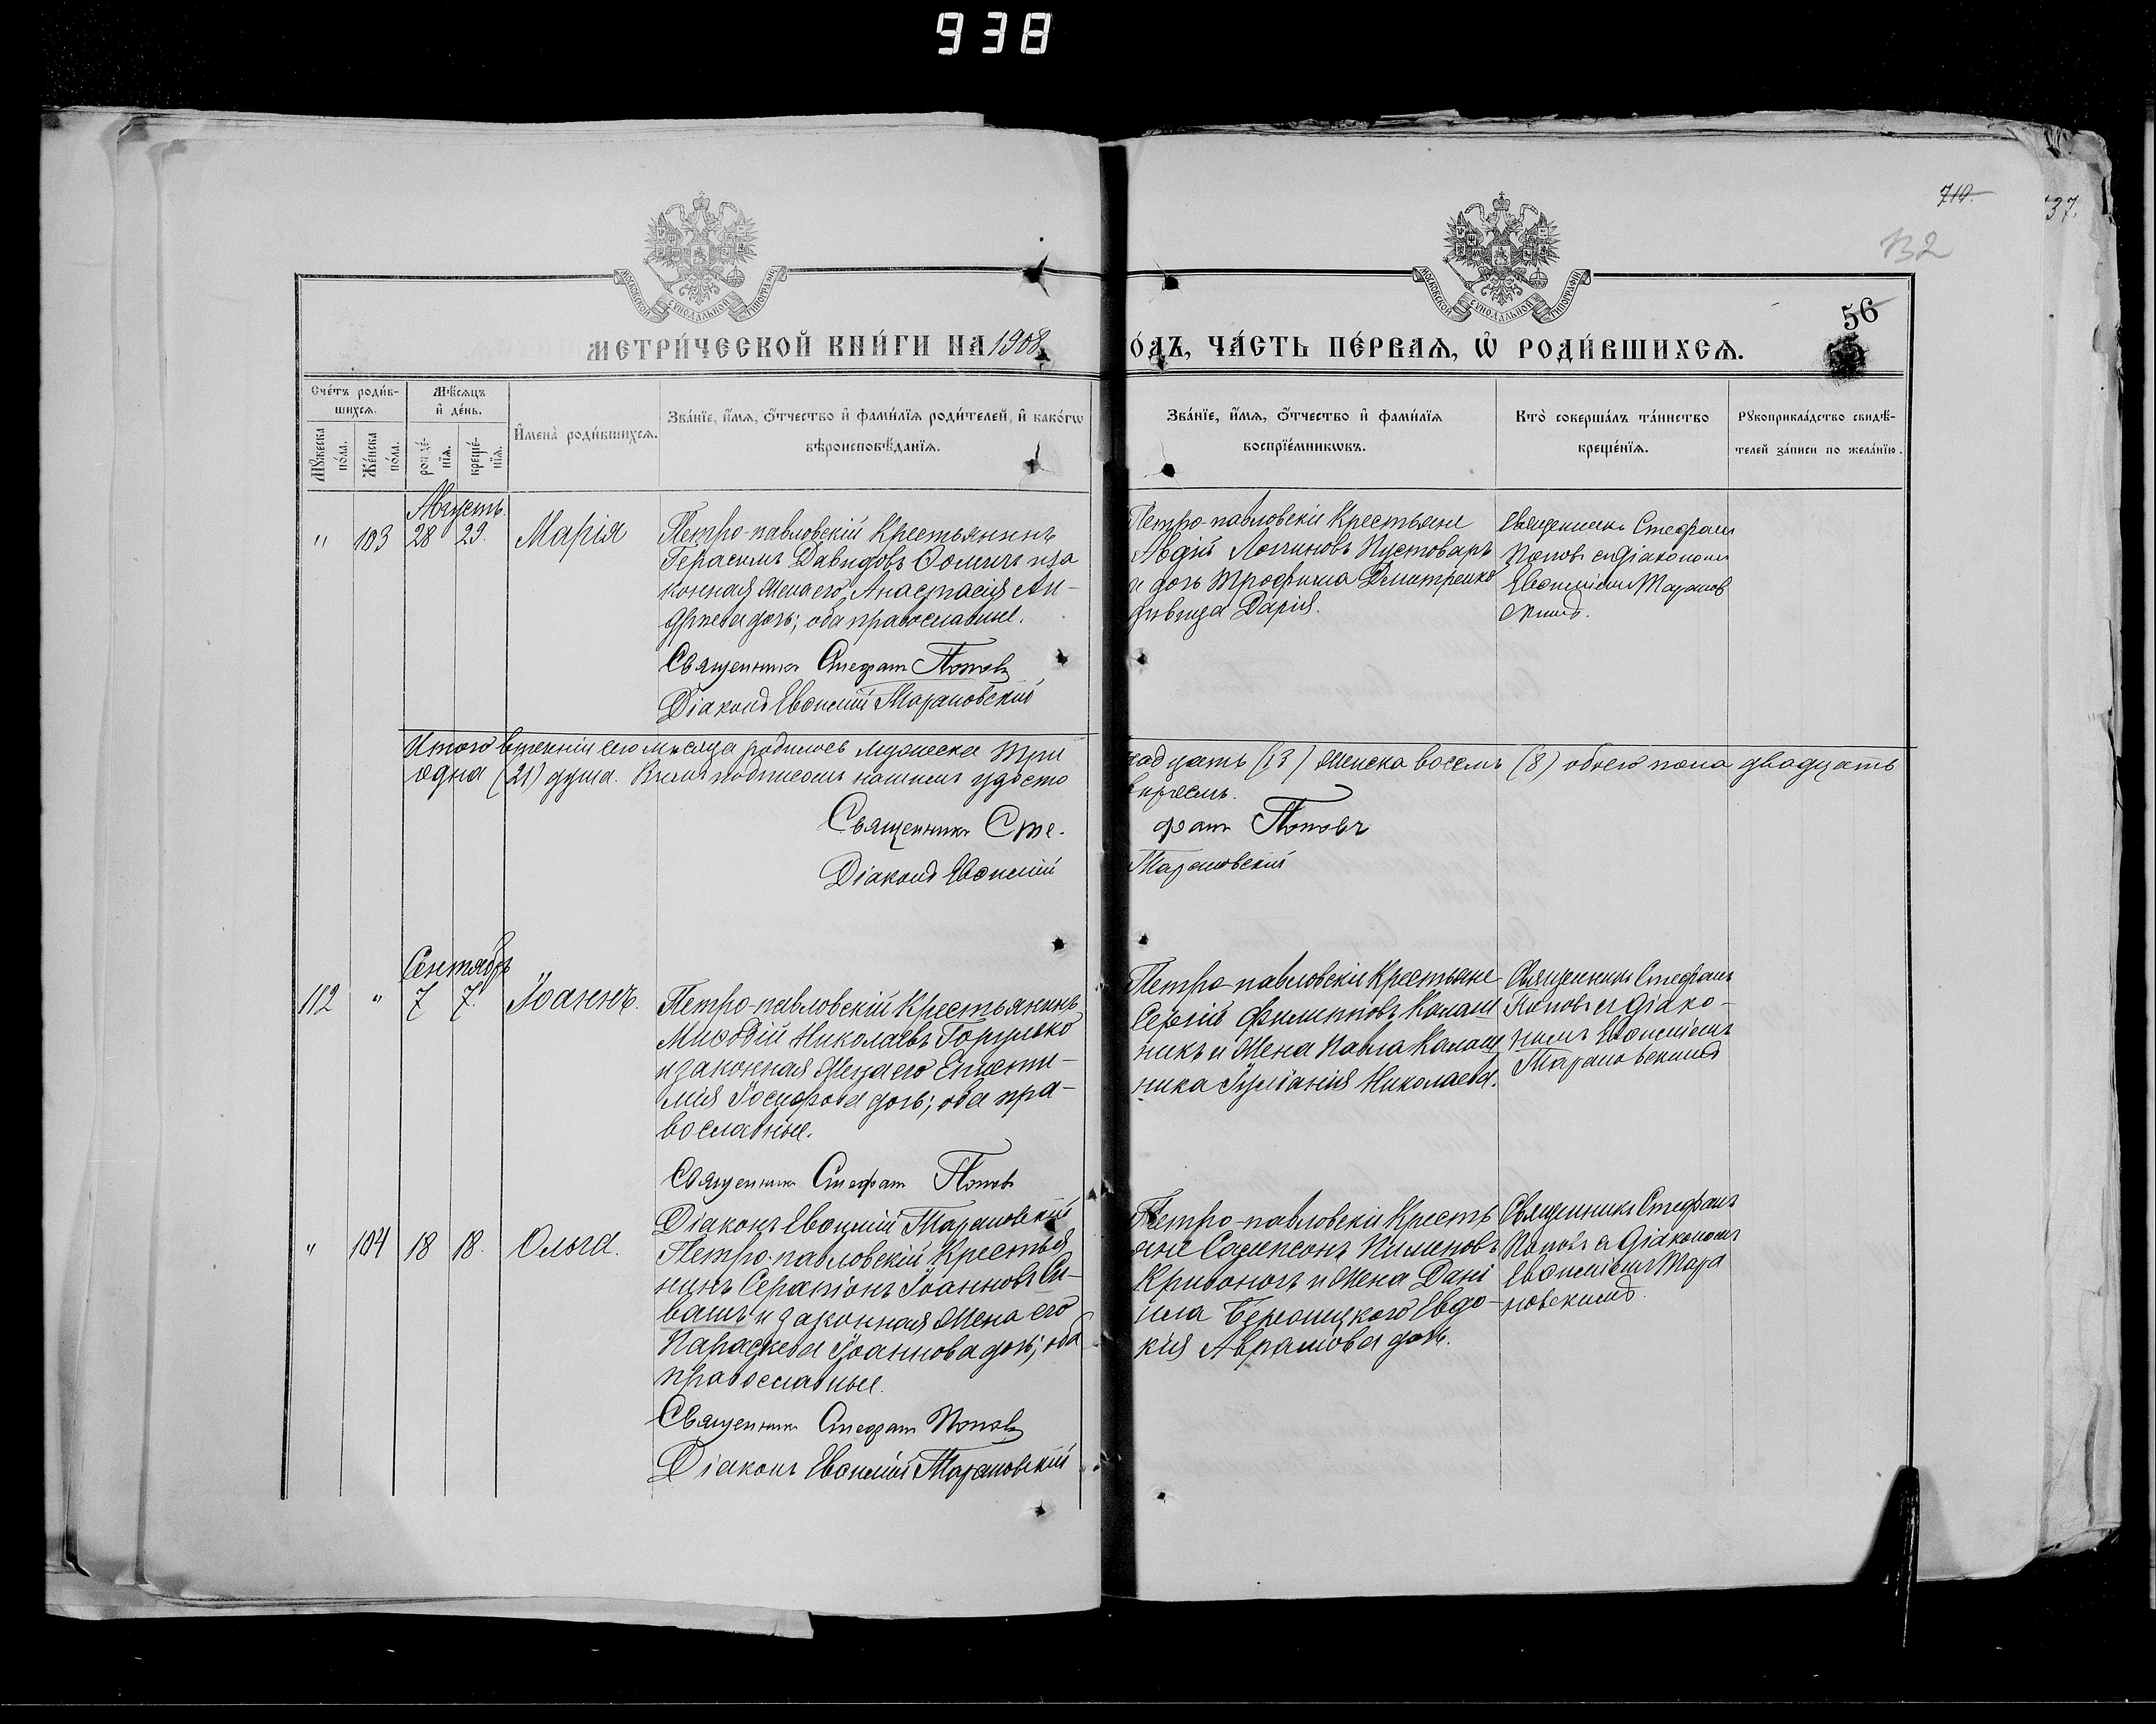 938
710.
37.
132
МОСКОВСКОЙ СУНОДАЛЬНОЙ ТИПОГРАФІИ
МОСКОВСКОЙ СУНОДАЛЬНОЙ ТИПОГРАФІИ
56
МЕТРИ́ЧЕСКОЙ КНИ́ГИ НА 1908
О́ДЪ, ЧА́СТЬ ПЕ́РВАѦ, Ѡ҆ РОДИ́ВШИХСѦ.
Сче́тъ роди́в-
шихсѧ.
Мѣ́сѧцъ
и҆ де́нь.
Мꙋ́жеска
по́ла.
Же́нска
по́ла.
рожде́-
нїѧ.
креще́-
нїѧ.
И҆мена̀ роди́вшихсѧ.
Зва́нїе, и҆́мѧ, ѻ҆́тчество и҆ фами́лїѧ роди́телей, и҆ како́гѡ
вѣроисповѣ́данїѧ.
Зва́нїе, и҆́мѧ, ѻ҆́тчество и҆ фами́лїѧ
воспрїе́мникѡвъ.
Кто̀ соверша́лъ та́инство
креще́нїѧ.
Рꙋкоприкла́дство свидѣ́-
телей за́писи по жела́нїю.
Августъ.
" 103 28 29. Марія
Петро-павловскій Крестьянинъ
Герасимъ Давидовъ Ѳоминъ и за
конная Жена его Анастасія Ан-
дреева дочь; оба православные.
Священникъ Стефанъ Поповъ
Діаконъ Евѳимій Тарановскій
Петро-павловскіе Крестьяне
Авдій Логиновъ Пустоваръ
и дочь Трофима Дмитренко
дѣвица Дарія.
Священникъ Стефанъ
Поповъ съ діакономъ
Евѳиміемъ Таранов
скимъ.
Итого втеченіи сего мѣсяца родилось мужеска три
надцать (13) Женска восемь (8) обоего пола двадцать
одна (21) душа. Въ чемъ подписомъ нашимъ удосто
вѣряемъ.
Священникъ Сте-
фанъ Поповъ
Діаконъ Евѳимій
Тарановскій
Сентябрь
112 " 7 7. Іоаннъ.
Петро-павловскій Крестьянинъ
Миѳодій Николаевъ Горулько
и законная Жена его Еписти-
мія Іосифова дочь; оба пра-
вославные.
Священникъ Стефанъ Поповъ
Діаконъ Евѳимій Тарановскій
Петро-павловскіе Крестьяне
Сергій Филиповъ Калаш
никъ и Жена Павла Калаш
ника Іуліанія Николаева.
Священникъ Стефанъ
Поповъ съ діако-
номъ Евѳиміемъ
Тарановскимъ
" 104 18 18. Ольга.
Петро-павловскій Крестья
нинъ Серапіонъ Іоанновъ Си-
вашъ и законная Жена его
Параскева Іоаннова дочь; оба
православные.
Священникъ Стефанъ Поповъ
Діаконъ Евѳимій Тарановскій
Петро-павловскіе Кресть
яне Сампсонъ Пименовъ
Кривоносъ и Жена Дані
ила Евдо-
кія Аврамова дочь.
Священникъ Стефанъ
Поповъ съ Діакономъ
Евѳиміемъ Тара
новскимъ.